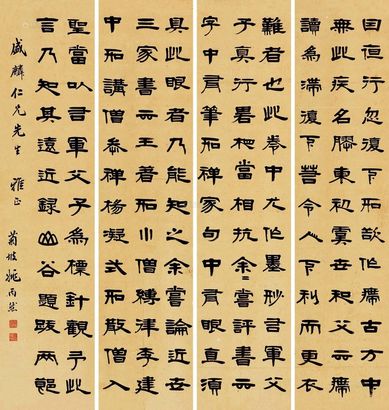 因恒行忽復下如廣古方中
無此疾名膠東初虞世和父云廣
讀為滯復下令人下利而更衣
難者也此中尤作墨右軍父
子真行當相抗余嘗評書
字中有筆如禪家句中眼直須
具此眼者乃能知之余嘗論近世
三家書云王著如小僧縛律李建
中如講僧參禪楊凝式如散僧入
聖當以右軍父子為標針觀予此
言乃知其遠近錄山谷題跋兩節
盛麟仁兄先生 雅正 菊坡姚丙然